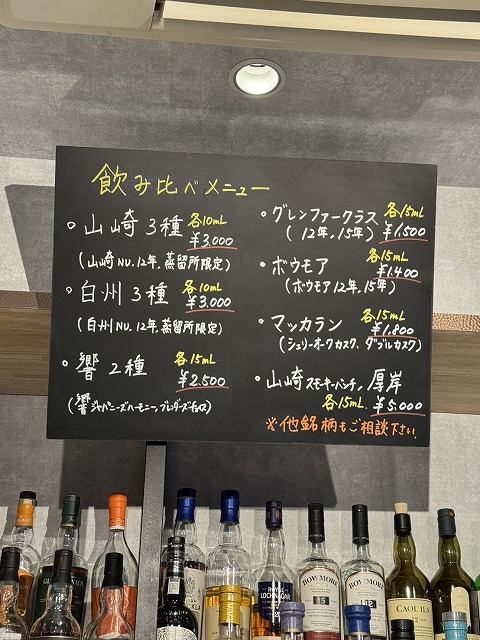 飲み比べメニュー
・山崎3種 各10mL ¥3,000
(山崎NV.12年,蒸留所限定)
・白州3種 各10mL ¥3,000
(白州NV.12年,蒸留所限定)
・響2種 各15mL ¥2,500
(響ジャパニーズハーモニー,ブレンダーズチョイス)
・グレンファークラス 各15mL
(12年,15年) ¥1,500
・ボウモア 各15mL ¥1,400
(ボウモア12年,15年)
・マッカラン 各15mL ¥1,800
(シェリーオークカスク、ダブルカスク)
・山崎スモーキーバッチ,厚岸
各15mL ¥5,000
※他銘柄もご相談下さい
ROYAL
LOCHNAGAR
BOWMORE
15
BOWMORE
12
CAOL ILA
12